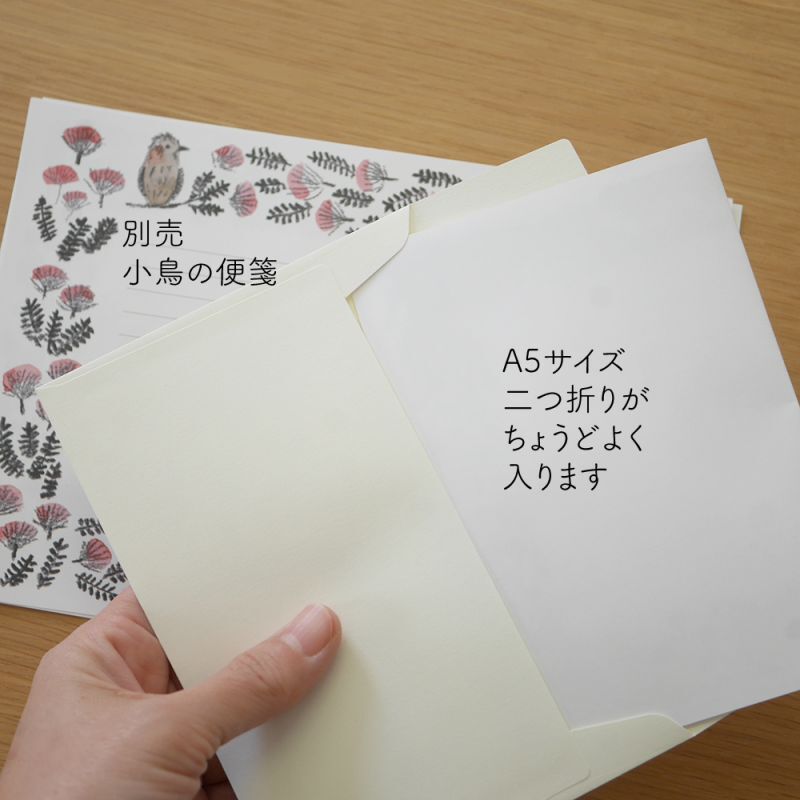 別売
小鳥の便箋
A5サイズ
二つ折りが
ちょうどよく
入ります